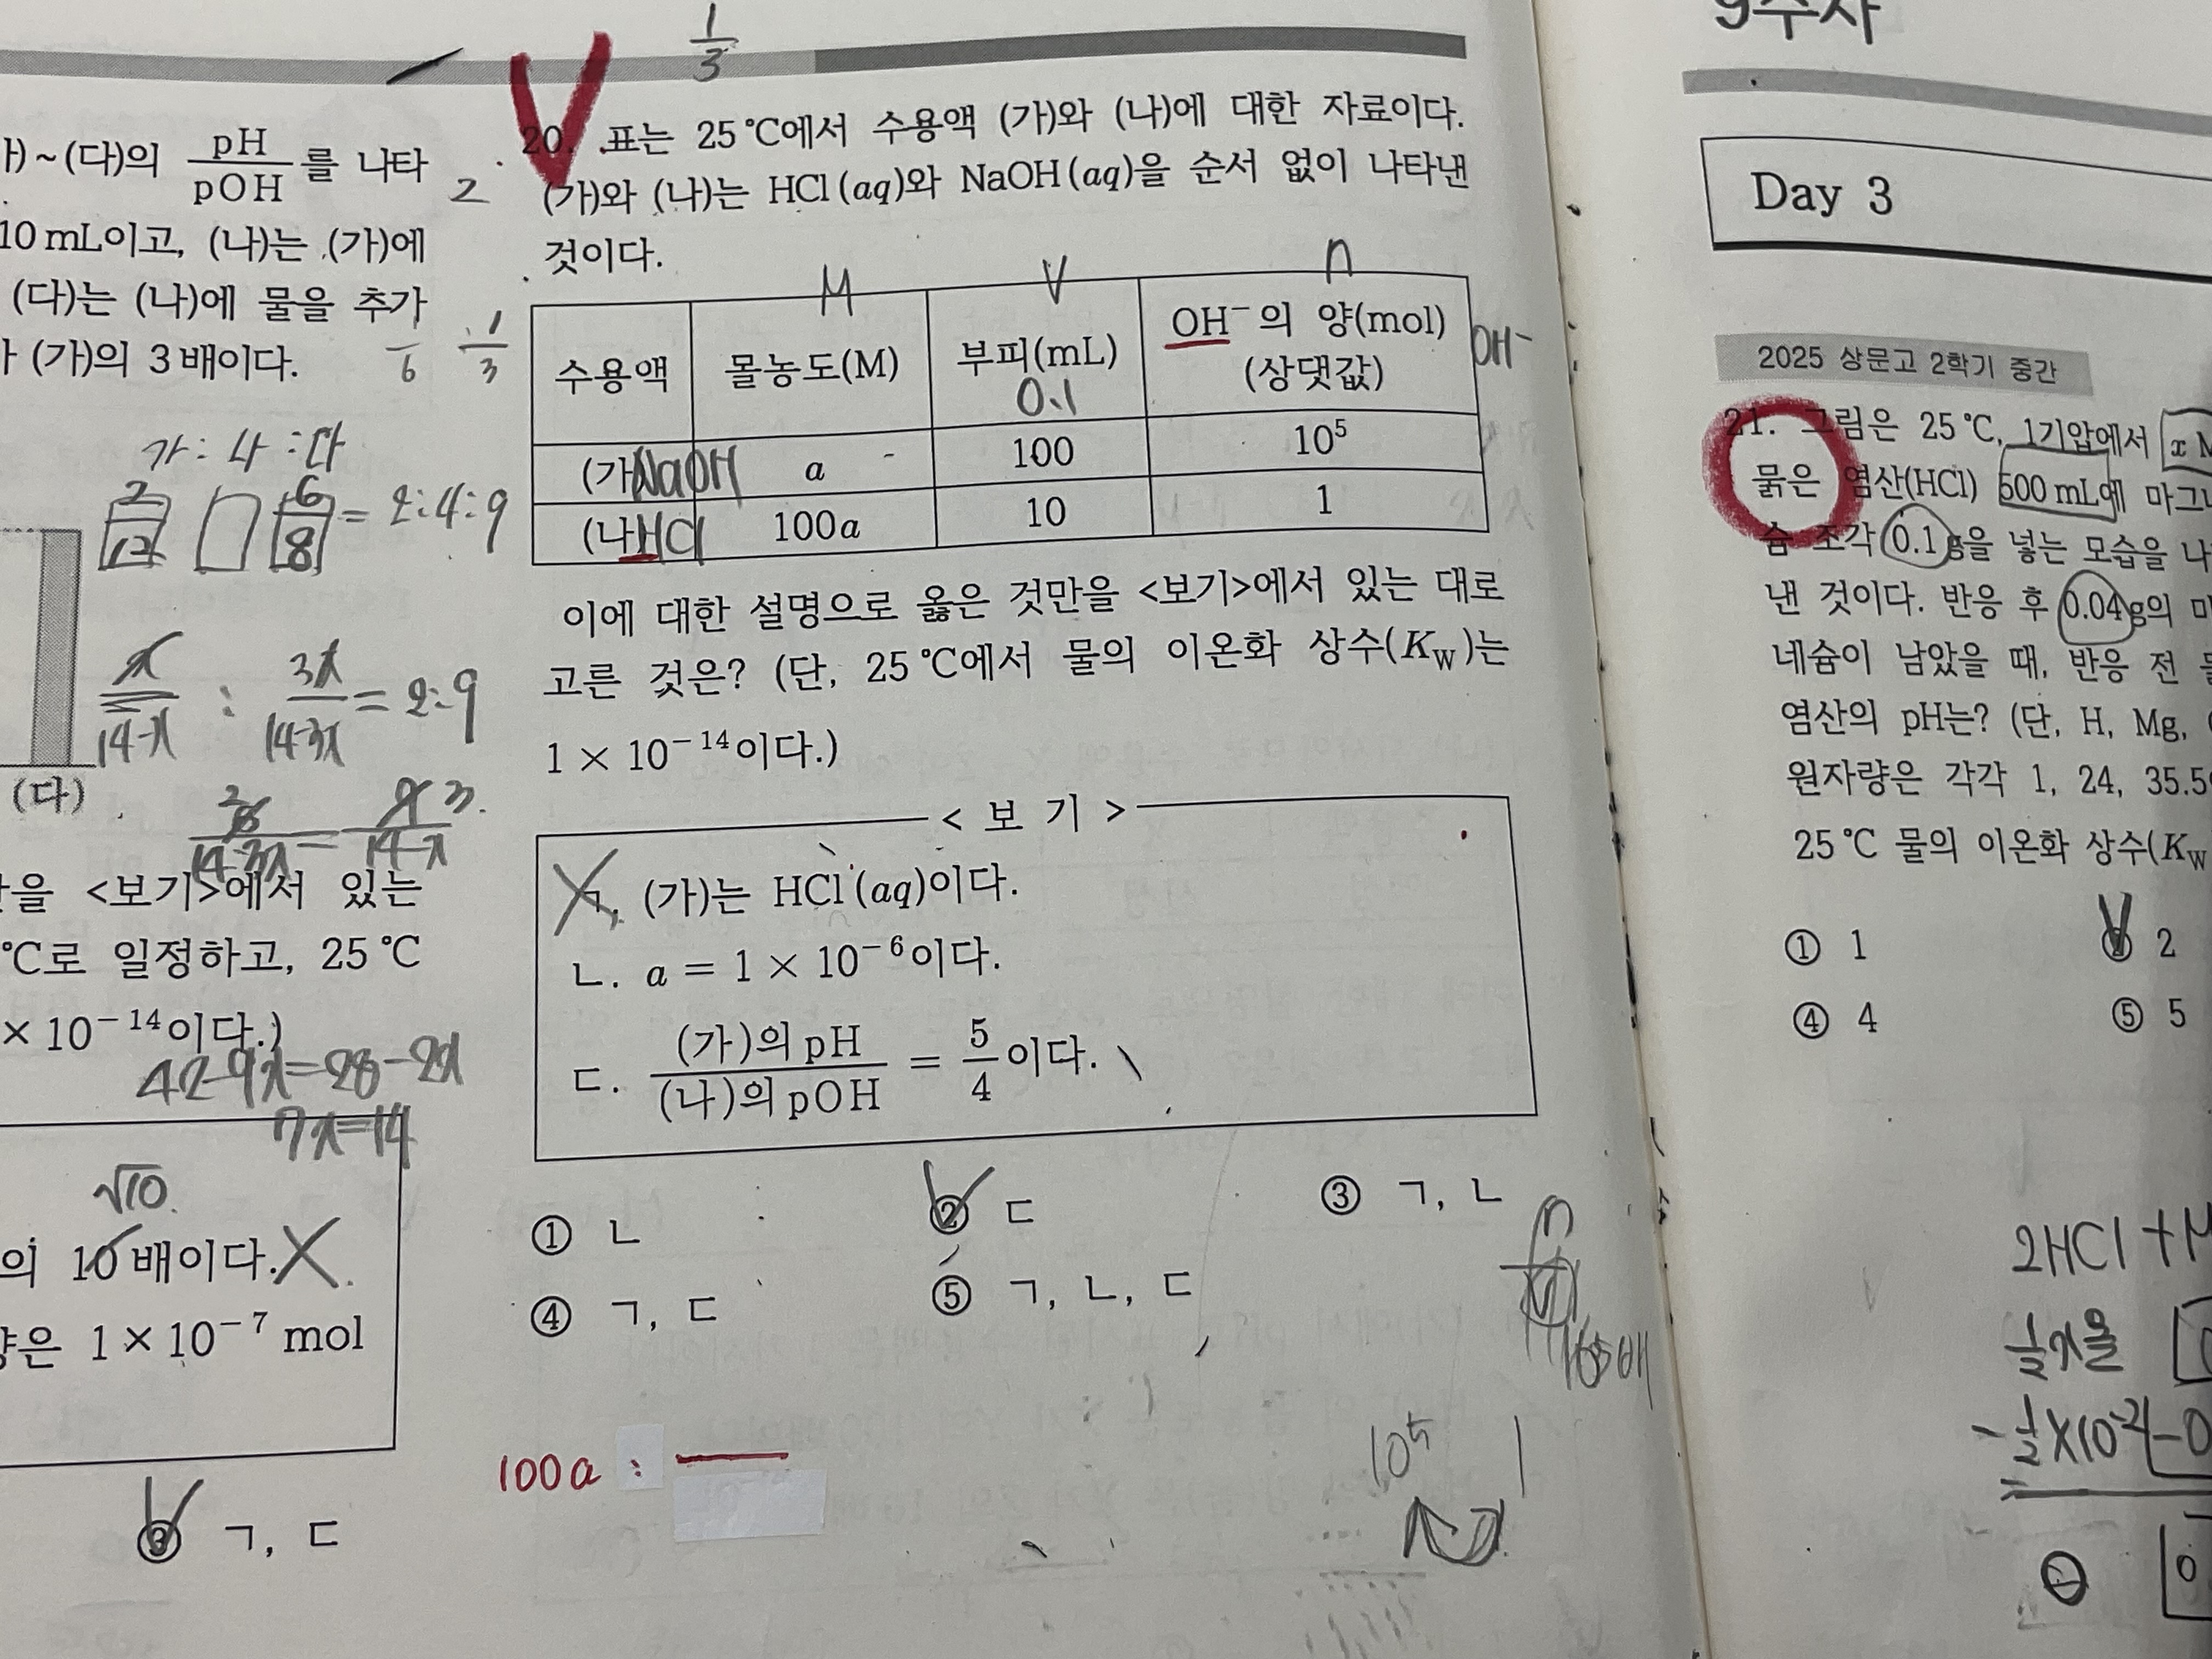 가)~(다)의 pH/pOH 를 나타
10 mL이고, (나)는 (가)에
(다)는 (나)에 물을 추가
가 (가)의 3배이다.
1/6 1/3
2
가 : 나 : 다
2/12 6/8 = 2:4:9
x/14-x : 3x/14-3x = 2:9
(다)
14-3x = 14-x 3
을 <보기>에서 있는
℃로 일정하고, 25 ℃
× 10⁻¹⁴이다.)
42-9x=28-2x
7x=14
√10
의 10배이다. X
양은 1×10⁻⁷ mol
③ ㄱ, ㄷ
1/3
20. 표는 25 ℃에서 수용액 (가)와 (나)에 대한 자료이다.
(가)와 (나)는 HCl(aq)와 NaOH(aq)을 순서 없이 나타낸
것이다.
M V n
수용액 몰농도(M) 부피(mL) OH⁻의 양(mol) (상댓값) OH⁻
0.1
(가) NaOH a 100 10⁵
(나) HCl 100a 10 1
이에 대한 설명으로 옳은 것만을 <보기>에서 있는 대로
고른 것은? (단, 25 ℃에서 물의 이온화 상수(K_W)는
1 × 10⁻¹⁴이다.)
< 보 기 >
ㄱ. (가)는 HCl(aq)이다.
ㄴ. a = 1 × 10⁻⁶이다.
ㄷ. (가)의 pH/(나)의 pOH = 5/4이다.
① ㄴ ② ㄷ ③ ㄱ, ㄴ
④ ㄱ, ㄷ ⑤ ㄱ, ㄴ, ㄷ
100a :
10⁵ 1
Day 3
2025 상문고 2학기 중간
21. 그림은 25 ℃, 1기압에서 x M
묽은 염산(HCl) 500 mL에 마그
슘 조각 0.1 g을 넣는 모습을 나
낸 것이다. 반응 후 0.04 g의 마
네슘이 남았을 때, 반응 전 묽
염산의 pH는? (단, H, Mg,
원자량은 각각 1, 24, 35.5
25 ℃ 물의 이온화 상수(K_W
① 1 ② 2
④ 4 ⑤ 5
2HCl + M
1/2 x몰
-1/2×10⁻²